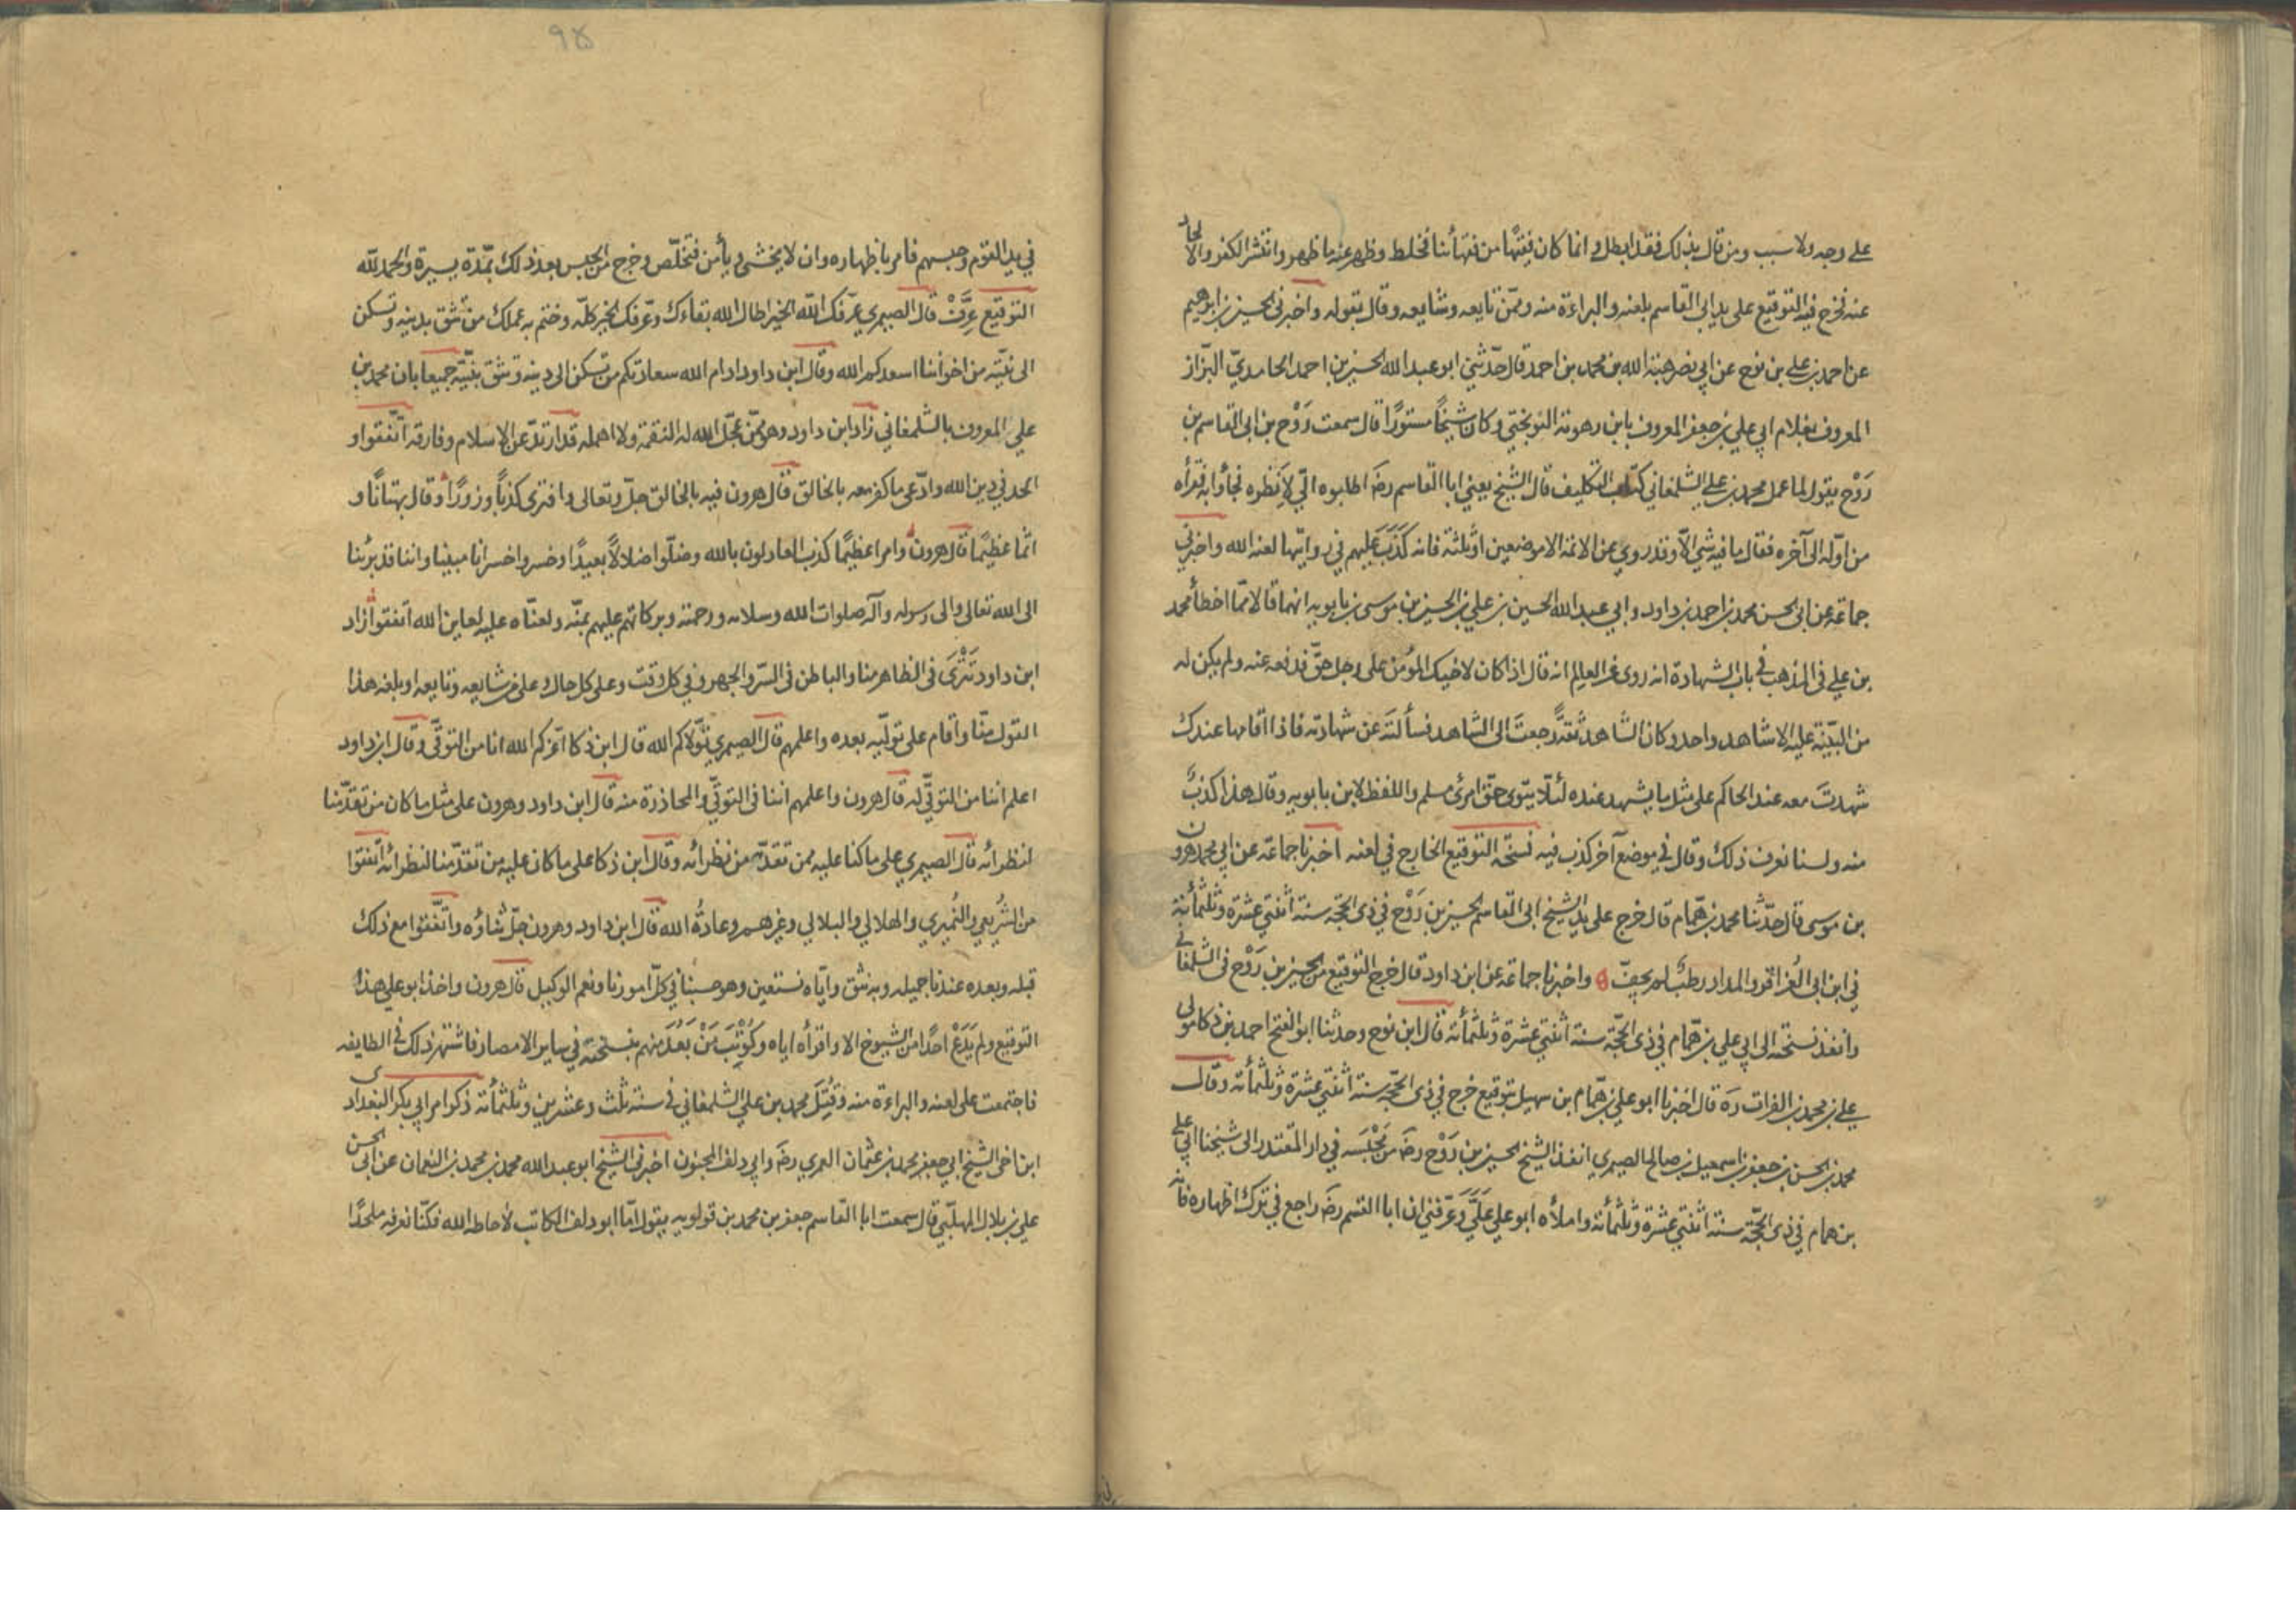 على وجه ولا سبب ومن قال بذلك فقد ابطل وانما كان فقيهًا من فقهائنا فخلط وظهر عنه ما ظهر وانتشر الكفر والالحاد
عنه فخرج فيه التوقيع على يد ابى القاسم بلعنه والبراءة منه وممّن تابعه وشايعه وقال بقوله واخبرنى الحسين بن ابرهيم
عن احمد بن علي بن نوح عن ابي نصر هبة الله بن محمد بن احمد قال حدّثني ابو عبد الله الحسين بن احمد الحامديّ البزّاز
المعروف بغلام ابي علي بن جعفر المعروف بابن رهومة النوبختي وكان شيخًا مستورًا قال سمعت رَوْح بن ابى القاسم بن
رَوْح يقول لما عمل محمد بن علي الشلمغاني كتاب التكليف قال الشيخ يعني ابا القاسم رضَ اطلبوه اليّ لاَنظره فجاؤا به فقرأه
من اوّله الى آخره فقال ما فيه شئ الاّ وقد روي عن الائمة الا موضعين او ثلثة فانه كَذَبَ عليهم في روايتها لعنه الله واخبرني
جماعة عن ابى الحسن محمد بن احمد بن داود وابي عبد الله الحسين بن علي بن الحسين بن موسى بن بابويه انهما قالا ممّا اخطأ محمد
بن علي فى المذهب في باب الشهادة انه روى عن العالم انه قال اذا كان لاخيك المؤمن على رجل حقّ فدفعه عنه ولم يكن له
من البيّنة عليه الا شاهد واحد وكان الشاهد ثقةً رجعتَ الى الشاهد فسألتَه عن شهادته فاذا اقامها عندك
شهدتَ معه عند الحاكم على مثل ما يشهد عنده لئلّا يتوى حقّ امرئ مسلم واللفظ لابن بابويه وقال هذا كذبٌ
منه ولسنا نعرف ذلك وقال في موضع آخر كذب فيه نسخة التوقيع الخارج في لعنه اخبرنا جماعة عن ابي محمد هرون
بن موسى قال حدّثنا محمد بن همّام قال خرج على يد الشيخ ابى القاسم الحسين بن رَوْح في ذى الحجّة سنة اثنتي عشرة وثلثمأئة
في ابن ابى العزاقر والمداد رطبٌ لم يجفّ واخبرنا جماعة عن ابن داود قال خرج التوقيع من الحسين بن رَوْح فى الشلمغاني
وانفذ نسخته الى ابي علي بن همّام في ذى الحجّة سنة اثنتي عشرة وثلثمأئة قال ابن نوح وحدثنا ابو الفتح احمد بن ذكا مولى
علي بن محمد بن الفرات رَه قال اخبرنا ابو علي بن همّام بن سهيل بتوقيع خرج في ذى الحجّة سنة اثنتي عشرة وثلثمأئة وقال
محمد بن الحسن بن جعفر بن اسمعيل بن صالح الصيمري انفذ الشيخ الحسين بن رَوْح رضَ من مَحْبَسه في دار المقتدر الى شيخنا ابي علي
بن همام في ذى الحجّة سنة اثنتي عشرة وثلثمأئة واملأه ابو علي عَلَيَّ وعَرّفني ان ابا القسم رضَ راجع في ترك اظهاره فانه
٩٥
في يد القوم وحبسهم فامر باظهاره وان لا يخشى ويأمن فتخلّص وخرج من الحبس بعد ذلك بمدّة يسيرة والحمد لله
التوقيع عَرِّفْ قال الصيمري عرّفك الله الخير اطال الله بقاءك وعرّفك الخير كلّه وختم به عملك من تثق بدينه وتسكن
الى نيّته من اخواننا اسعدكم الله وقال ابن داود ادام الله سعادتكم من تسكن الى دينه وتثق بنيّته جميعا بان محمد بن
علي المعروف بالشلمغاني زاد ابن داود وهو ممّن عجّل الله له النقمة ولا امهله قد ارتدّ عن الاسلام وفارقه اتّفقوا و
الحد في دين الله وادّعى ما كفر معه بالخالق قال هرون فيه بالخالق جلّ وتعالى وافترى كذبًا وزورًا وقال بهتانًا و
اثمًا عظيمًا قال هرون وامرا عظيمًا كذب العادلون بالله وضلّوا ضلالاً بعيدًا وخسروا خسرانا مبينا واننا قد برئنا
الى الله تعالى والى رسوله وآله صلوات الله وسلامه ورحمته وبركاته عليهم بمنّه ولعنّاه عليه لعاين الله اتّفقوا زاد
ابن داود تَتْرَى فى الظاهر منا والباطن فى السرّ والجهر وفي كل وقت وعلى كل حال وعلى من شايعه وتابعه او بلغه هذا
القول منّا واقام على تولّيه بعده واعلمهم قال الصيمري تولّاكم الله قال ابن ذكا اعزّكم الله انا من التوقّي وقال ابن داود
اعلم اننا من التوقّي له قال هرون واعلمهم اننا فى التوقّي والمحاذرة منه قال ابن داود وهرون على مثل ما كان من تقدّمنا
لنظرائه قال الصيمري على ما كنا عليه ممن تقدّمه من نظرائه وقال ابن ذكا على ما كان عليه من تقدّمنا لنظرائه اتّفقوا
من الشريعي والنُميري والهلالي والبلالي وغيرهم وعادةُ الله قال ابن داود وهرون جلّ ثناؤه واتّفقوا مع ذلك
قبله وبعده عندنا جميلة وبه نثق وايّاه نستعين وهو حسبنا في كلّ امورنا ونعم الوكيل قال هرون واخذ ابو علي هذا
التوقيع ولم يَدَعْ احدًا من الشيوخ الا واقرأه اياه وكُوْتِبَ مَنْ بَعُدَ منهم بنسخته في ساير الامصار فاشتهر ذلك في الطايفه
فاجتمعت على لعنه والبراءة منه وقُتِلَ محمد بن علي الشلمغاني في سنة ثلث وعشرين وثلثمأئة ذكر امر ابي بكر البغدادى
ابن اخى الشيخ ابي جعفر محمد بن عثمان العمري رضَ وابي دلف المجنون اخبرنى الشيخ ابو عبد الله محمد بن محمد بن النعمان عن ابى الحسن
علي بن بلال المهلّبي قال سمعت ابا القاسم جعفر بن محمد بن قولويه يقول امّا ابو دلف الكاتب لا حاطه الله فكنّا نعرفه ملحدًا